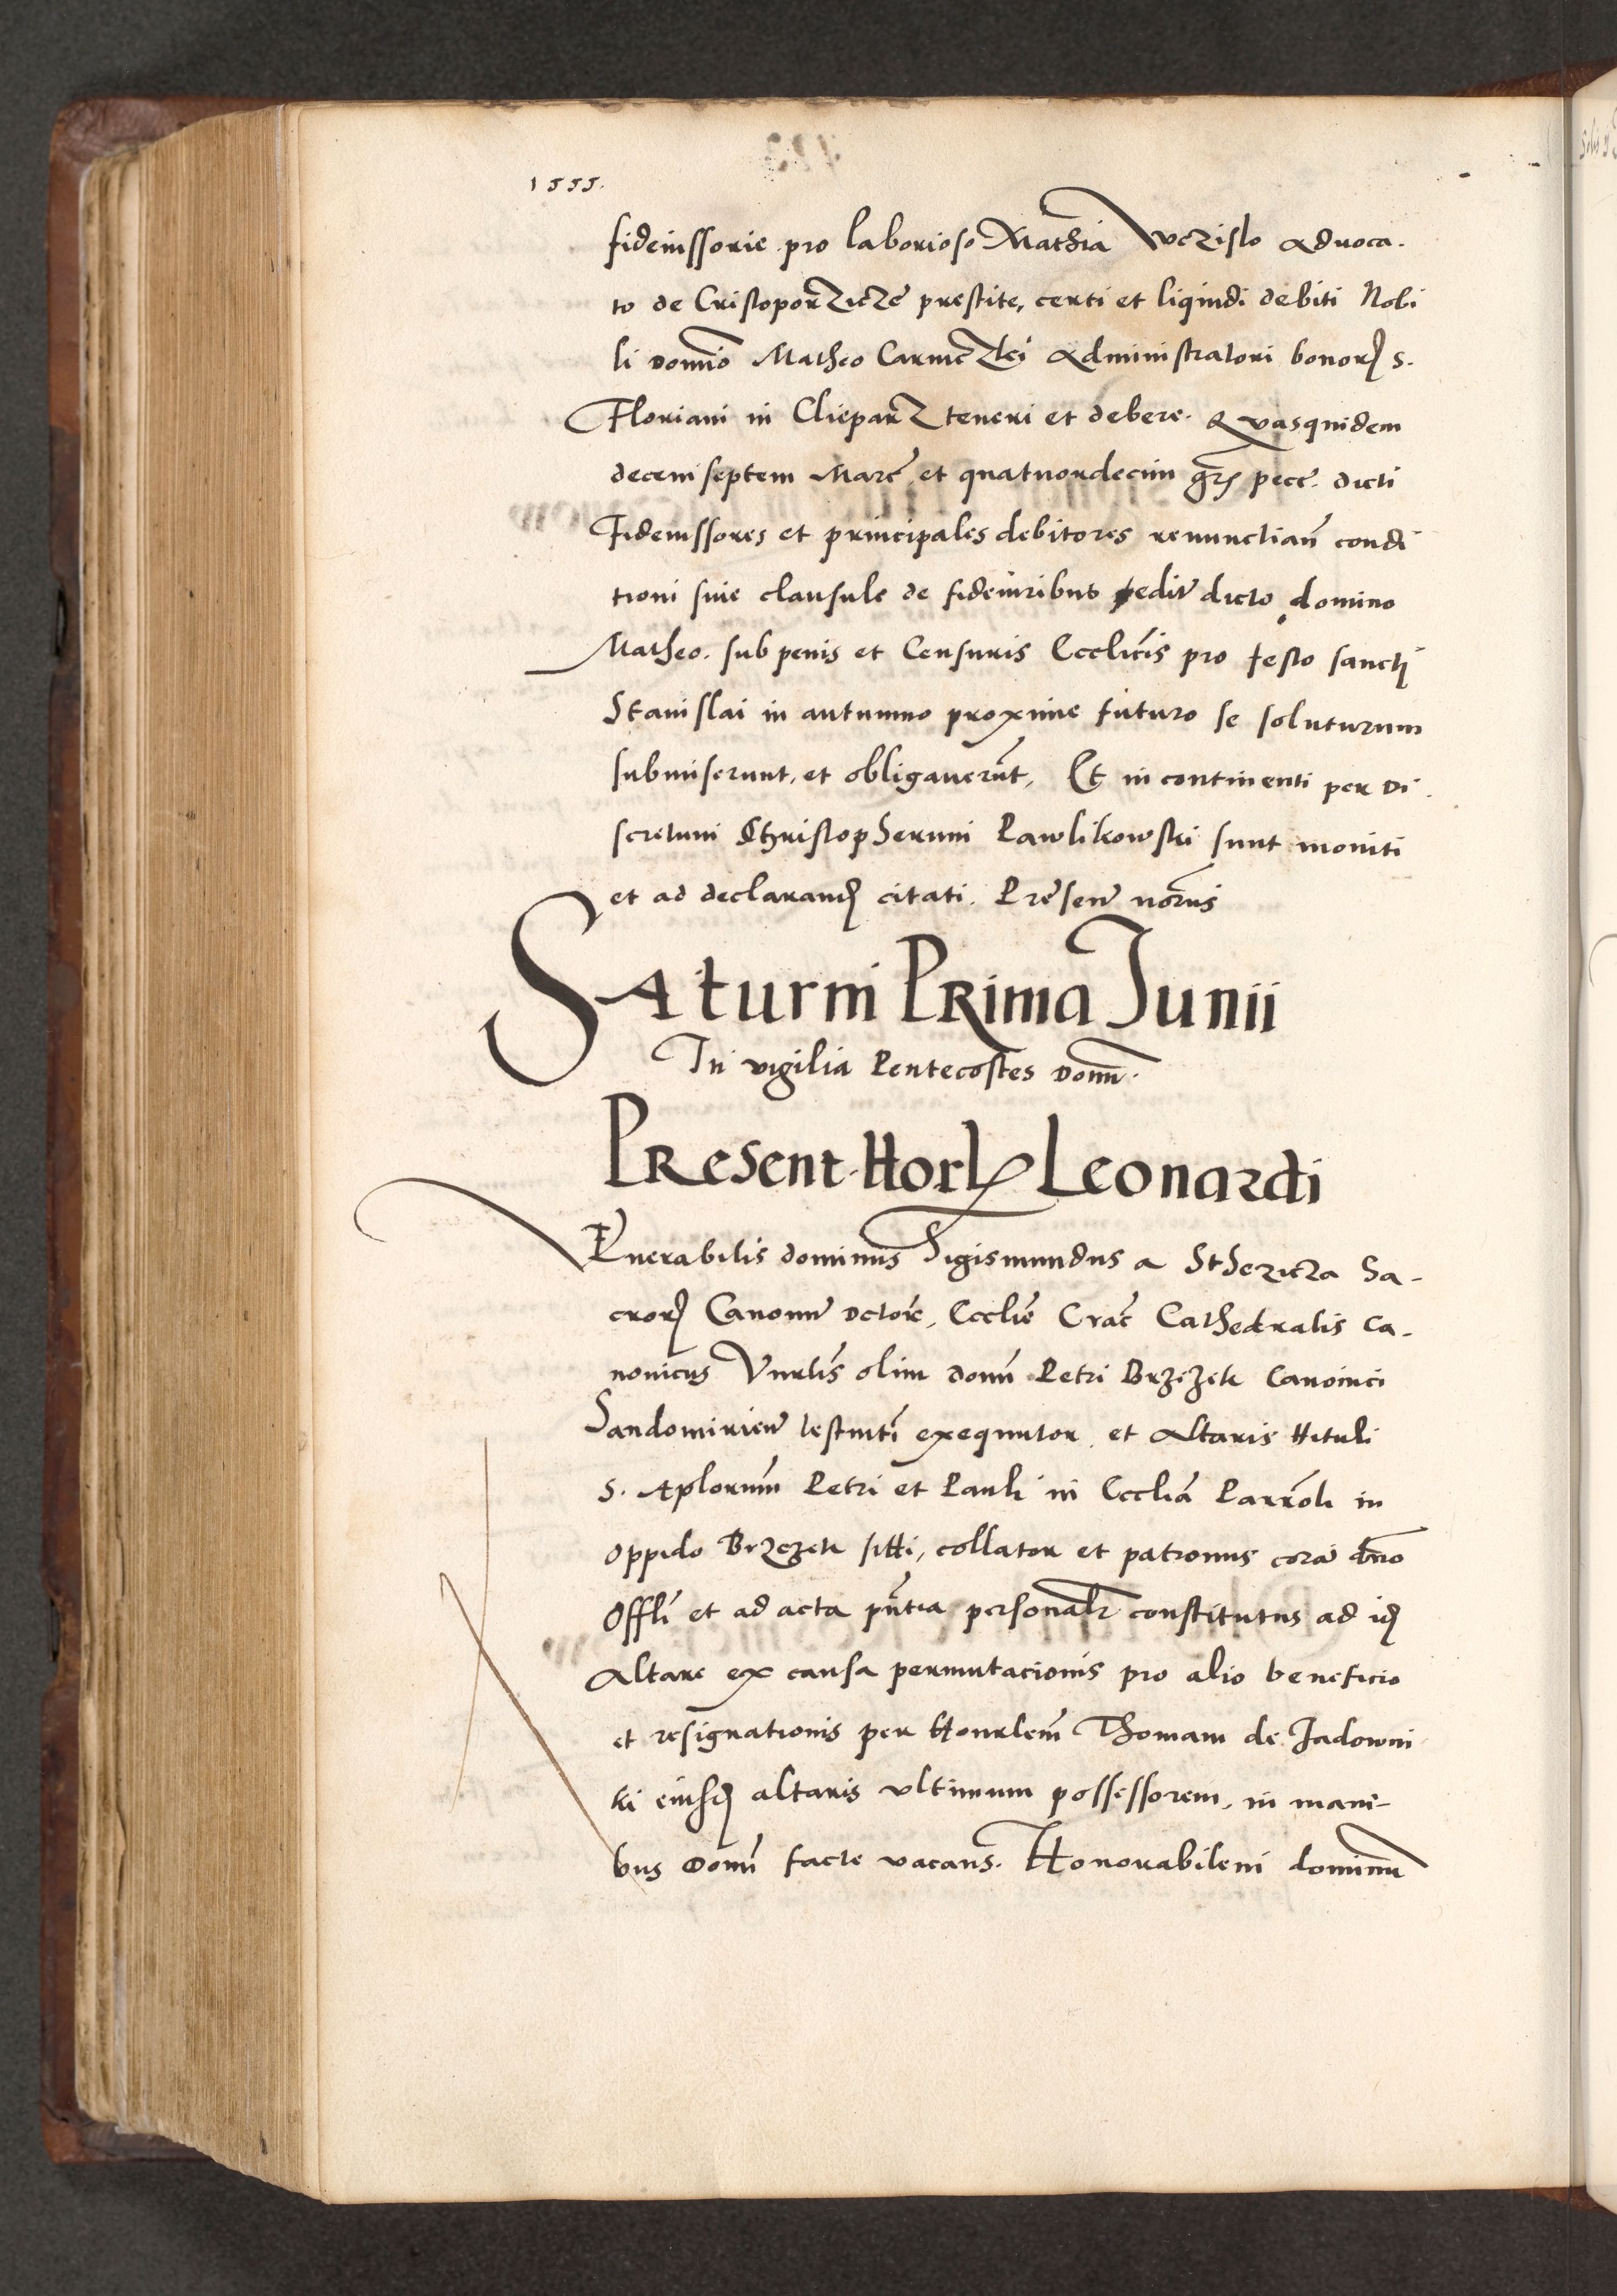 1555.
fideiussorie pro laborioso Mathia Vczislo Aduoca-
to de Cristoporzicze prestite, certi et liquidi debiti Nobi
li domio Matheo Carniczki Administratori bonor̄ S.
Floriani in Clieparz teneri et debere. Quasquidem
decem septem Marc̄ et quatuordecim gr̄s pecc̄. dicti
Fideiussores et principales debitores renunctian̄ condi
tioni siue clausule de fideiuribus dicto domino
Matheo. sub penis et Censuris Eccliĉis pro festo sancti
Stanislai in autumno proxime futuro se soluturum
submiserunt, et obligauerūt, Et in continenti per Di-
scretum Christopherum Pawlikowski sunt moniti
et ad declarand̄ citati. Presen̄ no͞rus
SAturni PRima Junii
In vigilia Pentecostes Domī.
PResent. Horl Leonardi
VEnerabilis dominus Sigismundus a Sthezicza Sa-
cror̄ Canonū Dctor̄, Ecclie̅ Crac̄ Cathedralis Ca-
nonicus Vnrl̄is olim domī Petri Brzezek Canonici
Sandomirien̄ testmti̅ exequutor, et Altaris tituli
S. Aplorum̄ Petri et Pauli in Eccliā Parrōli in
oppido Brzezek siti, collator et patronus corā dn̄o
Offl̄i et ad acta pn̄tia personalr̄ constitutus ad id̄
Altare ex causa permutacionis pro alio beneficio
et resignationis per Honrlem̄ Thomam de Jadowni
ki eiusd̄ altaris vltimum possessorem, in mani-
bus Domī facte vacans. Honorabilem dominū